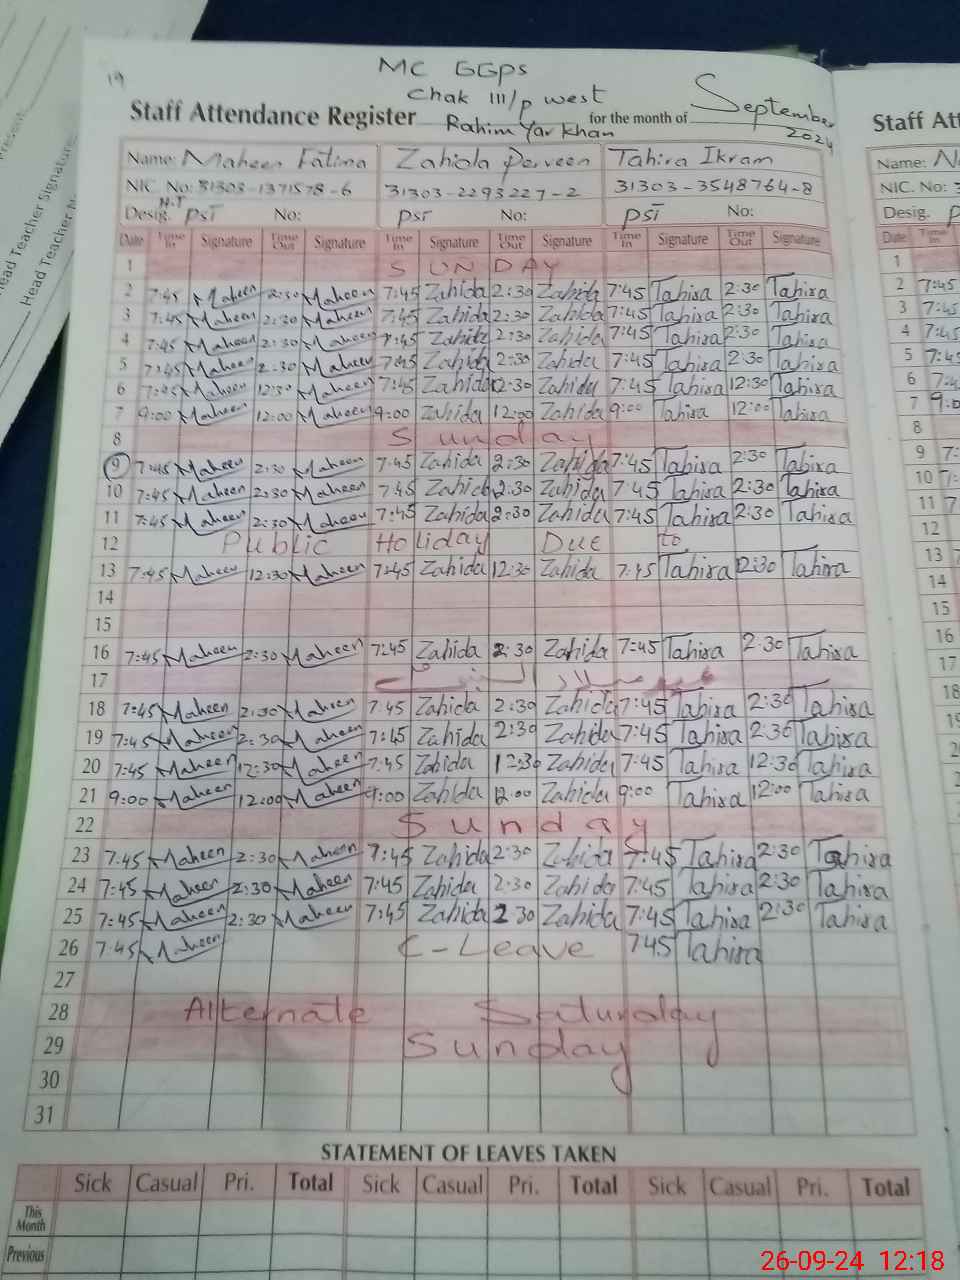 19
MC GGPS
Chak 111/p west
Staff Attendance Register Rahim Yar Khan for the month of September 2024
Name: Maheen Fatima Zahida Perveen Tahira Ikram
NIC. No: 31303-1371578-6 31303-2293227-2 31303-3548764-8
N.T
Desig. PST No: PST No: PST No:
Date Time In Signature Time Out Signature Time In Signature Time Out Signature Time In Signature Time Out Signature
1 SUNDAY
2 7:45 Maheen 2:30 Maheen 7:45 Zahida 2:30 Zahida 7:45 Tahira 2:30 Tahira
3 7:45 Maheen 2:30 Maheen 7:45 Zahida 2:30 Zahida 7:45 Tahira 2:30 Tahira
4 7:45 Maheen 2:30 Maheen 7:45 Zahida 2:30 Zahida 7:45 Tahira 2:30 Tahira
5 7:45 Maheen 2:30 Maheen 7:45 Zahida 2:30 Zahida 7:45 Tahira 2:30 Tahira
6 7:45 Maheen 12:30 Maheen 7:45 Zahida 12:30 Zahida 7:45 Tahira 12:30 Tahira
7 9:00 Maheen 12:00 Maheen 9:00 Zahida 12:00 Zahida 9:00 Tahira 12:00 Tahira
8 Sunday
9 7:45 Maheen 2:30 Maheen 7:45 Zahida 2:30 Zahida 7:45 Tahira 2:30 Tahira
10 7:45 Maheen 2:30 Maheen 7:45 Zahida 2:30 Zahida 7:45 Tahira 2:30 Tahira
11 7:45 Maheen 2:30 Maheen 7:45 Zahida 2:30 Zahida 7:45 Tahira 2:30 Tahira
12 Public Holiday Due to
13 7:45 Maheen 12:30 Maheen 7:45 Zahida 12:30 Zahida 7:45 Tahira 12:30 Tahira
14
15
16 7:45 Maheen 2:30 Maheen 7:45 Zahida 2:30 Zahida 7:45 Tahira 2:30 Tahira
17 عید میلاد النبی
18 7:45 Maheen 2:30 Maheen 7:45 Zahida 2:30 Zahida 7:45 Tahira 2:30 Tahira
19 7:45 Maheen 2:30 Maheen 7:45 Zahida 2:30 Zahida 7:45 Tahira 2:30 Tahira
20 7:45 Maheen 12:30 Maheen 7:45 Zahida 12:30 Zahida 7:45 Tahira 12:30 Tahira
21 9:00 Maheen 12:00 Maheen 9:00 Zahida 12:00 Zahida 9:00 Tahira 12:00 Tahira
22 Sunday
23 7:45 Maheen 2:30 Maheen 7:45 Zahida 2:30 Zahida 7:45 Tahira 2:30 Tahira
24 7:45 Maheen 2:30 Maheen 7:45 Zahida 2:30 Zahida 7:45 Tahira 2:30 Tahira
25 7:45 Maheen 2:30 Maheen 7:45 Zahida 2 30 Zahida 7:45 Tahira 2:30 Tahira
26 7:45 Maheen C-Leave 745 Tahira
27
28 Alternate Saturday
29 Sunday
30
31
STATEMENT OF LEAVES TAKEN
Sick Casual Pri. Total Sick Casual Pri. Total Sick Casual Pri. Total
This Month
Previous
Head Teacher Signature
Head Teacher
Staff Att
Name: N
NIC. No: 3
Desig. P
Date Time In
1
2 7:45
3 7:45
4 7:45
5 7:4
6 7:4
7 9:0
8
9 7:
10 7:
11 7
12
13
14
15
16
17
18
26-09-24 12:18